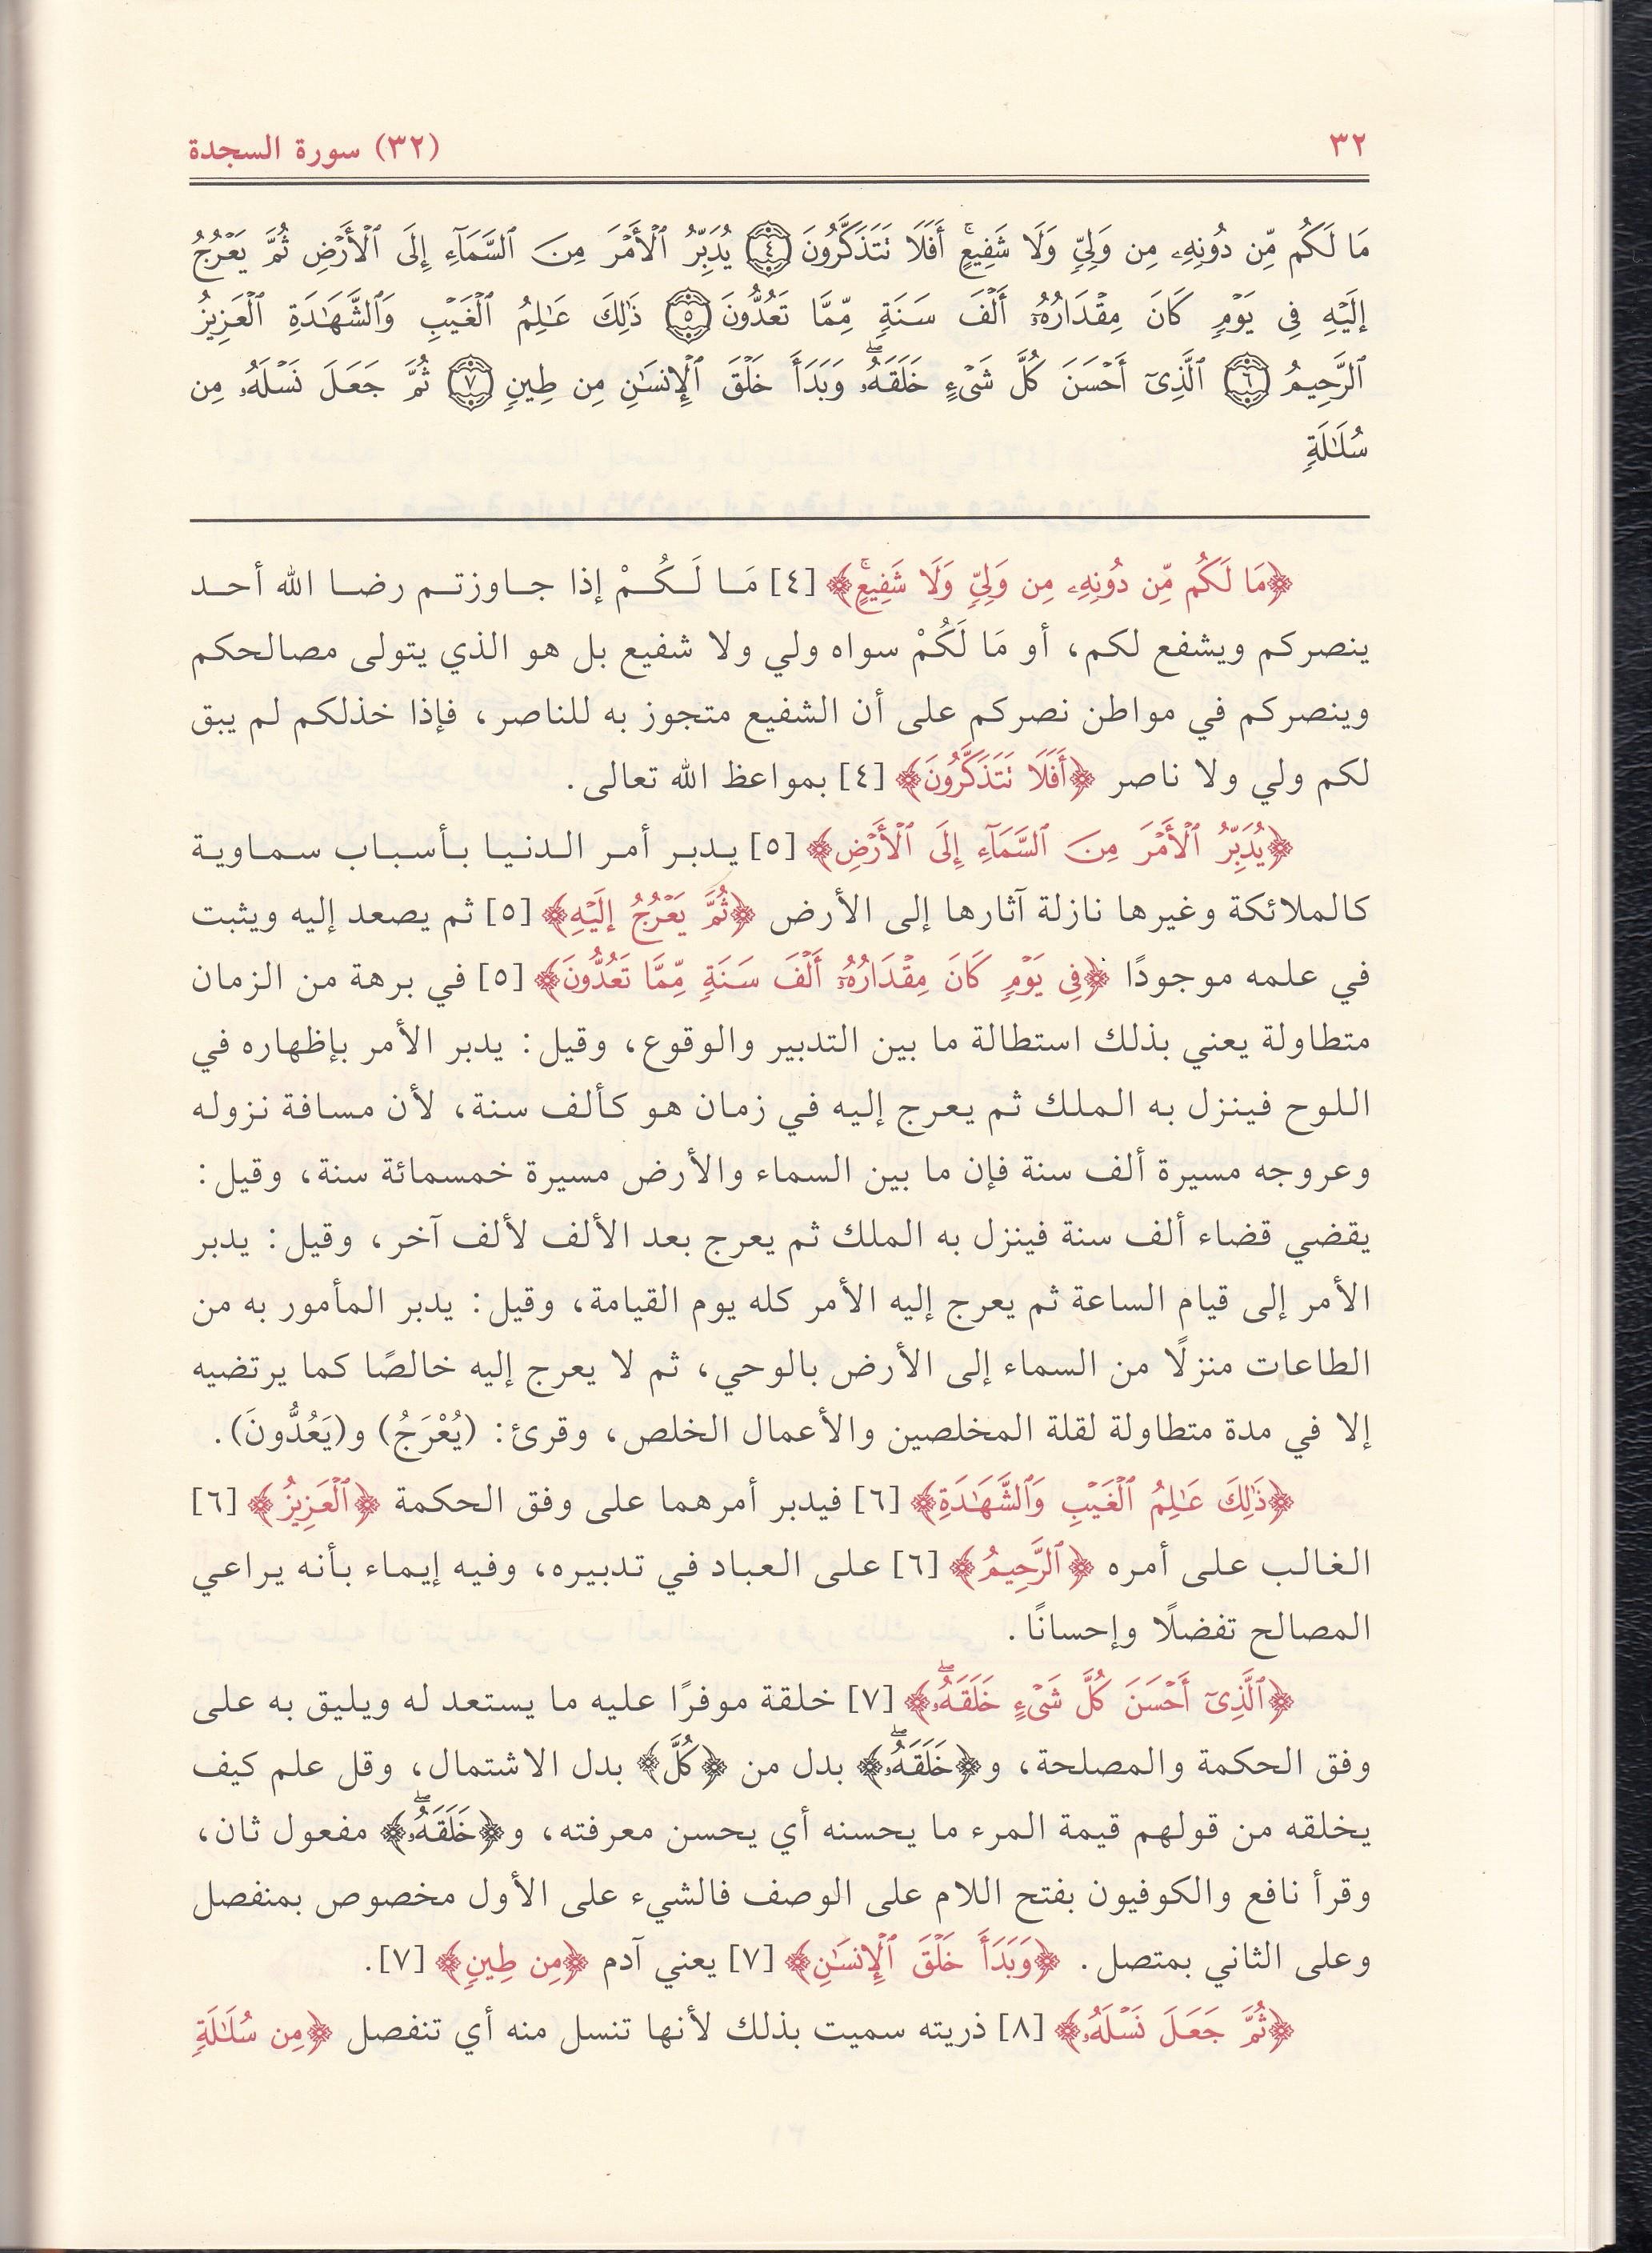 ٣٢ (٣٢) سورة السجدة
مَا لَكُم مِّن دُونِهِۦ مِن وَلِيٍّ وَلَا شَفِيعٍۚ أَفَلَا تَتَذَكَّرُونَ ٤ يُدَبِّرُ ٱلْأَمْرَ مِنَ ٱلسَّمَآءِ إِلَى ٱلْأَرْضِ ثُمَّ يَعْرُجُ
إِلَيْهِ فِى يَوْمٍ كَانَ مِقْدَارُهُۥٓ أَلْفَ سَنَةٍ مِّمَّا تَعُدُّونَ ٥ ذَٰلِكَ عَـٰلِمُ ٱلْغَيْبِ وَٱلشَّهَـٰدَةِ ٱلْعَزِيزُ
ٱلرَّحِيمُ ٦ ٱلَّذِىٓ أَحْسَنَ كُلَّ شَىْءٍ خَلَقَهُۥۖ وَبَدَأَ خَلْقَ ٱلْإِنسَـٰنِ مِن طِينٍ ٧ ثُمَّ جَعَلَ نَسْلَهُۥ مِن
سُلَـٰلَةٍ
﴿مَا لَكُم مِّن دُونِهِۦ مِن وَلِيٍّ وَلَا شَفِيعٍۚ﴾ [٤] مَا لَكُمْ إذا جاوزتم رضا الله أحد
ينصركم ويشفع لكم، أو مَا لَكُمْ سواه ولي ولا شفيع بل هو الذي يتولى مصالحكم
وينصركم في مواطن نصركم على أن الشفيع متجوز به للناصر، فإذا خذلكم لم يبق
لكم ولي ولا ناصر ﴿أَفَلَا تَتَذَكَّرُونَ﴾ [٤] بمواعظ الله تعالى.
﴿يُدَبِّرُ ٱلْأَمْرَ مِنَ ٱلسَّمَآءِ إِلَى ٱلْأَرْضِ﴾ [٥] يدبر أمر الدنيا بأسباب سماوية
كالملائكة وغيرها نازلة آثارها إلى الأرض ﴿ثُمَّ يَعْرُجُ إِلَيْهِ﴾ [٥] ثم يصعد إليه ويثبت
في علمه موجودًا ﴿فِى يَوْمٍ كَانَ مِقْدَارُهُۥٓ أَلْفَ سَنَةٍ مِّمَّا تَعُدُّونَ﴾ [٥] في برهة من الزمان
متطاولة يعني بذلك استطالة ما بين التدبير والوقوع، وقيل: يدبر الأمر بإظهاره في
اللوح فينزل به الملك ثم يعرج إليه في زمان هو كألف سنة، لأن مسافة نزوله
وعروجه مسيرة ألف سنة فإن ما بين السماء والأرض مسيرة خمسمائة سنة، وقيل:
يقضي قضاء ألف سنة فينزل به الملك ثم يعرج بعد الألف لألف آخر، وقيل: يدبر
الأمر إلى قيام الساعة ثم يعرج إليه الأمر كله يوم القيامة، وقيل: يدبر المأمور به من
الطاعات منزلًا من السماء إلى الأرض بالوحي، ثم لا يعرج إليه خالصًا كما يرتضيه
إلا في مدة متطاولة لقلة المخلصين والأعمال الخلص، وقرئ: (يُعْرَجُ) و(يَعُدُّونَ).
﴿ذَٰلِكَ عَـٰلِمُ ٱلْغَيْبِ وَٱلشَّهَـٰدَةِ﴾ [٦] فيدبر أمرهما على وفق الحكمة ﴿ٱلْعَزِيزُ﴾ [٦]
الغالب على أمره ﴿ٱلرَّحِيمُ﴾ [٦] على العباد في تدبيره، وفيه إيماء بأنه يراعي
المصالح تفضلًا وإحسانًا.
﴿ٱلَّذِىٓ أَحْسَنَ كُلَّ شَىْءٍ خَلَقَهُۥۖ﴾ [٧] خلقة موفرًا عليه ما يستعد له ويليق به على
وفق الحكمة والمصلحة، و﴿خَلَقَهُۥۖ﴾ بدل من ﴿كُلَّ﴾ بدل الاشتمال، وقل علم كيف
يخلقه من قولهم قيمة المرء ما يحسنه أي يحسن معرفته، و﴿خَلَقَهُۥۖ﴾ مفعول ثان،
وقرأ نافع والكوفيون بفتح اللام على الوصف فالشيء على الأول مخصوص بمنفصل
وعلى الثاني بمتصل. ﴿وَبَدَأَ خَلْقَ ٱلْإِنسَـٰنِ﴾ [٧] يعني آدم ﴿مِن طِينٍ﴾ [٧].
﴿ثُمَّ جَعَلَ نَسْلَهُۥ﴾ [٨] ذريته سميت بذلك لأنها تنسل منه أي تنفصل ﴿مِن سُلَـٰلَةٍ